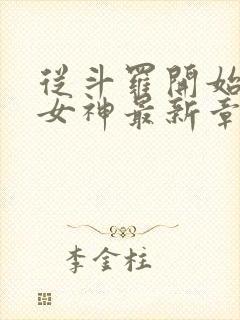 從斗羅開始
女神最新章
李金柱